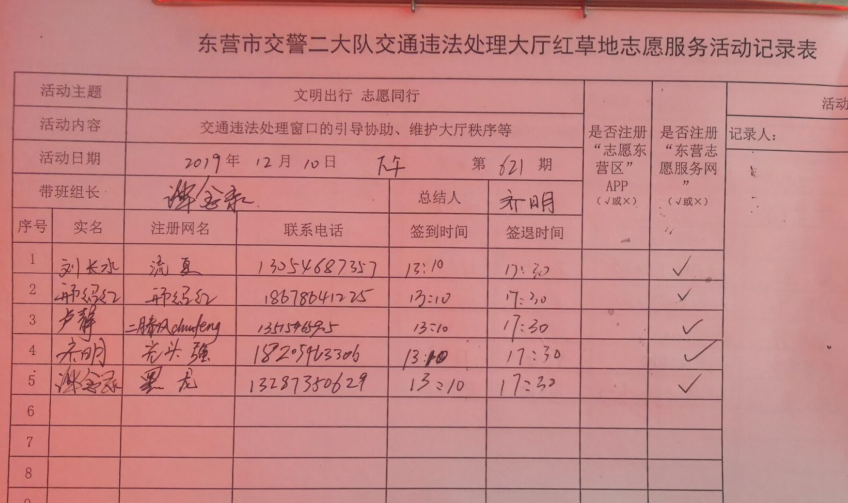 东营市交警二大队交通违法处理大厅红草地志愿服务活动记录表
活动主题 文明出行 志愿同行 是否注册“志愿东营区”APP（√或×） 是否注册“东营志愿服务网”（√或×） 活动
活动内容 交通违法处理窗口的引导协助、维护大厅秩序等 记录人：
活动日期 2019年 12月 10日 下午 第 621 期
带班组长 总结人 齐明
序号 实名 注册网名 联系电话 签到时间 签退时间
1 刘长水 流夏 13054687357 13:10 17:30 √
2 18678641225 13:10 17:30 √
3 卢静 13:10 17:30 √
4 齐明 光头强 18205463306 13:10 17:30 √
5 黑龙 13287350629 13:10 17:30 √
6
7
8